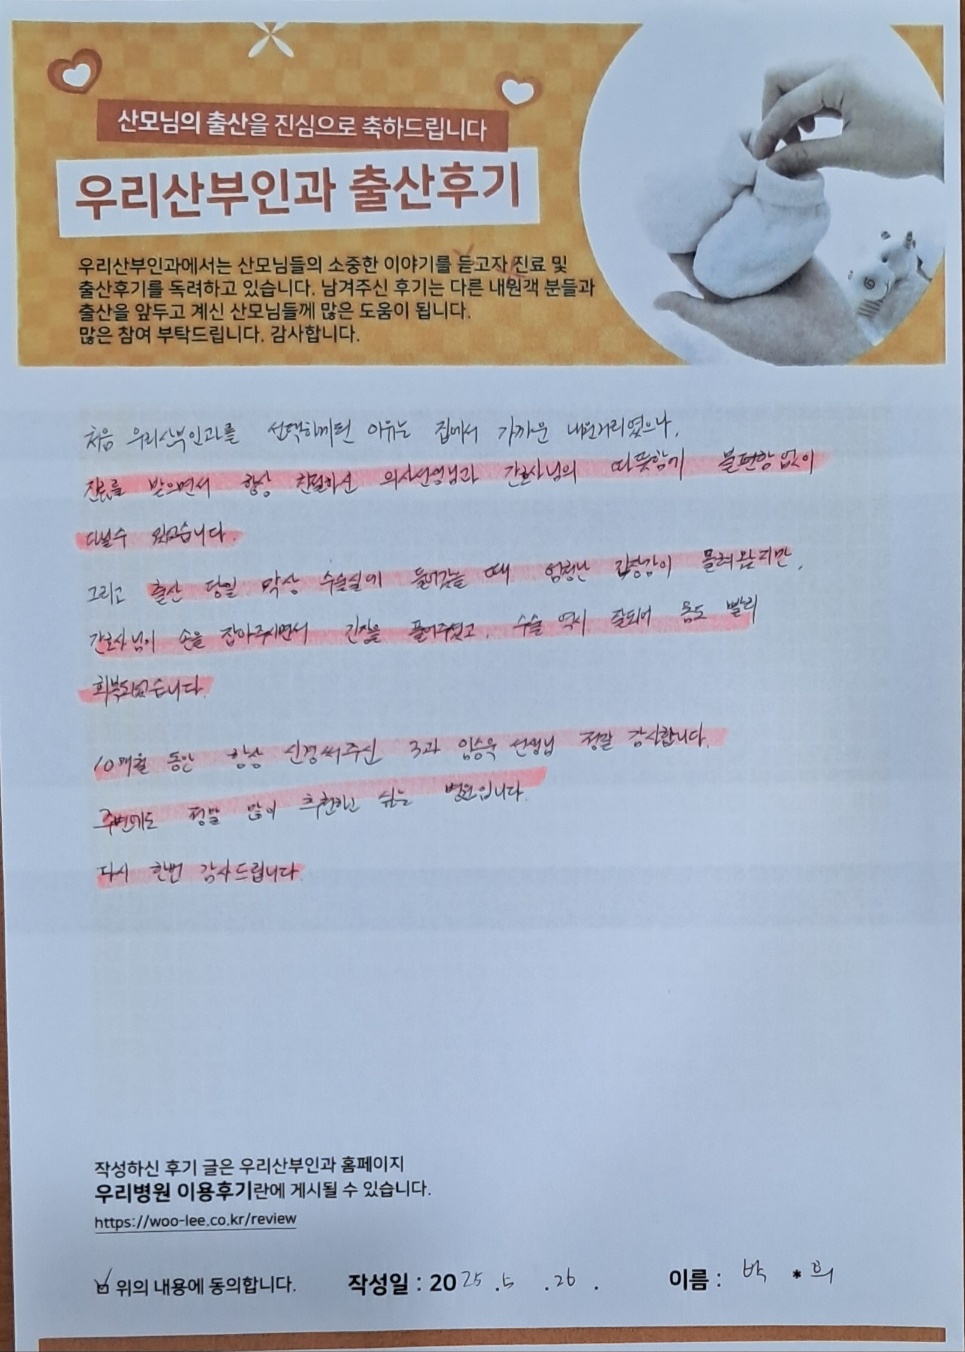 산모님의 출산을 진심으로 축하드립니다
우리산부인과 출산후기
우리산부인과에서는 산모님들의 소중한 이야기를 듣고자 진료 및
출산후기를 독려하고 있습니다. 남겨주신 후기는 다른 내원객 분들과
출산을 앞두고 계신 산모님들께 많은 도움이 됩니다.
많은 참여 부탁드립니다. 감사합니다.
처음 우리산부인과를 선택하게된 이유는 집에서 가까운 내원거리였으나,
진료를 받으면서 항상 친절하신 의사선생님과 간호사님의 따뜻함에 불편함 없이
다닐수 있었습니다.
그리고 출산 당일 막상 수술실에 들어갔을 때 엄청난 긴장감이 몰려왔지만,
간호사님이 손을 잡아주시면서 긴장을 풀어주셨고, 수술 역시 잘되어 몸도 빨리
회복되었습니다.
10개월 동안 항상 신경써주신 3과 임승욱 선생님 정말 감사합니다.
주변에도 정말 많이 추천하고 싶은 병원입니다.
다시 한번 감사드립니다.
작성하신 후기 글은 우리산부인과 홈페이지
우리병원 이용후기란에 게시될 수 있습니다.
https://woo-lee.co.kr/review
위의 내용에 동의합니다. 작성일 : 2025.5.26. 이름 : 박*희